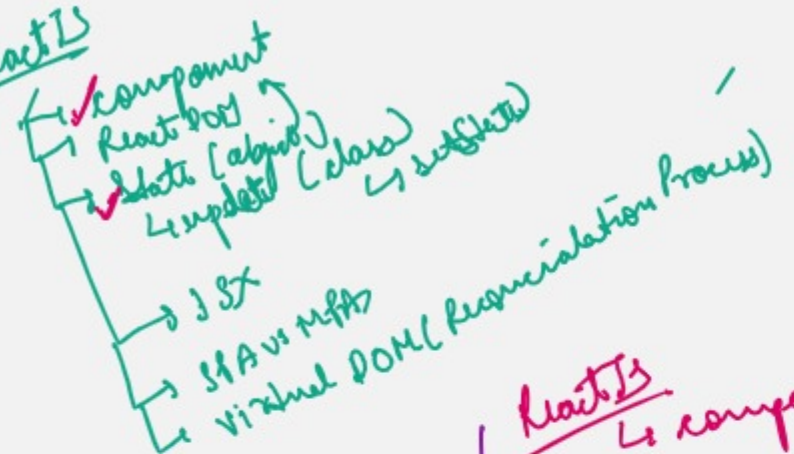 actJS
component
React DOM
State (object)
↳ update (class)
↳ setState
JSX
SPA vs MPA
Virtual DOM (Reconcialation Process)
ReactJS
↳ compo